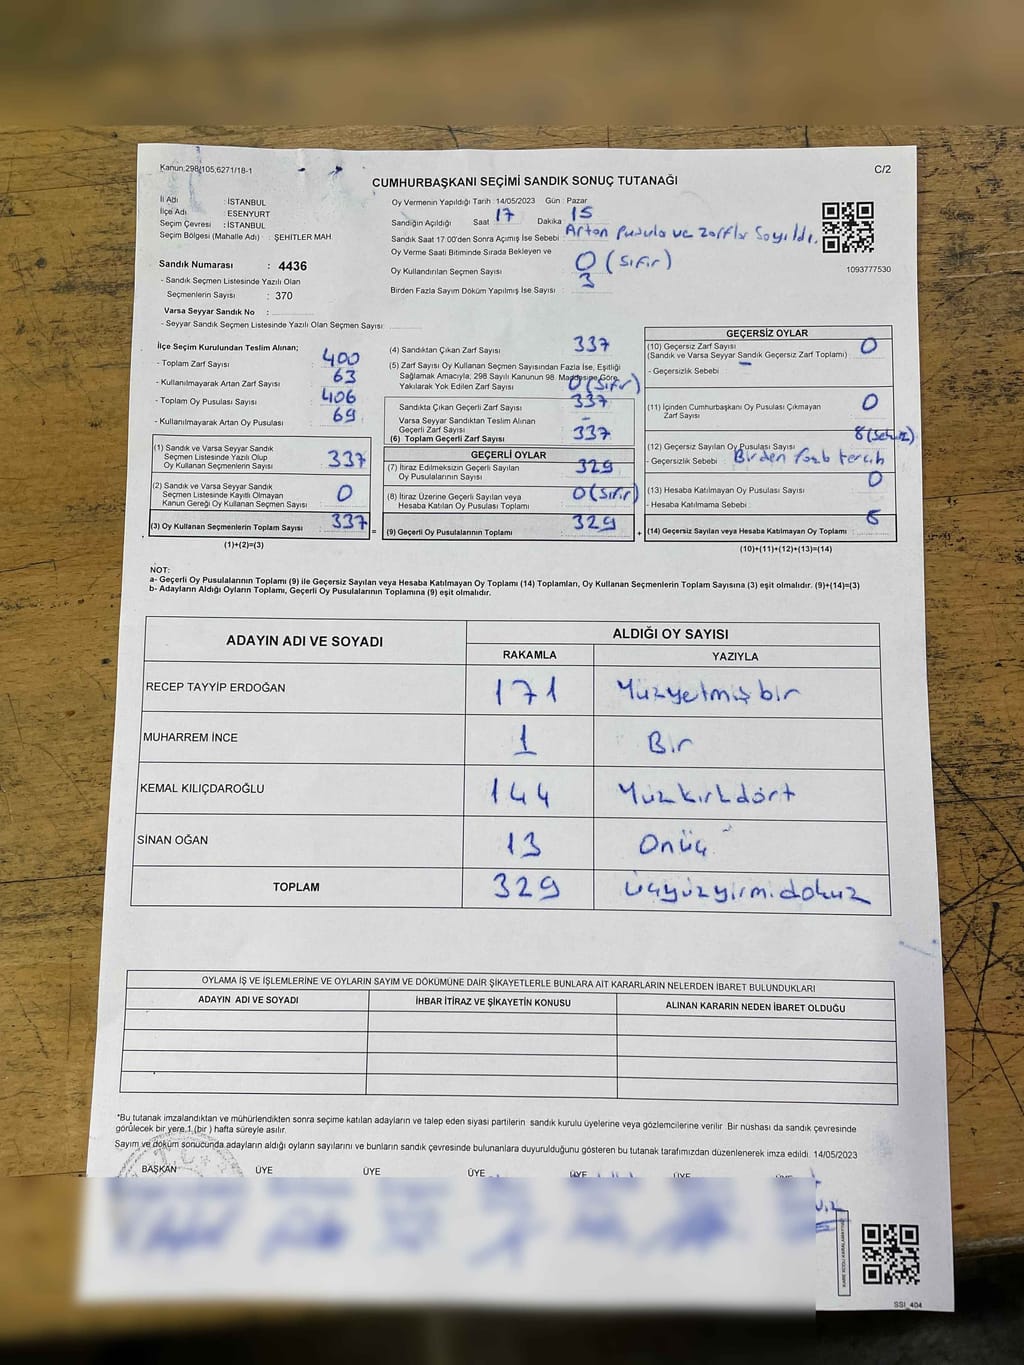 Kanun:298/105,6271/18-1
C/2
CUMHURBAŞKANI SEÇİMİ SANDIK SONUÇ TUTANAĞI
İl Adı : İSTANBUL
İlçe Adı : ESENYURT
Seçim Çevresi : İSTANBUL
Seçim Bölgesi (Mahalle Adı) : ŞEHİTLER MAH.
Sandık Numarası : 4436
- Sandık Seçmen Listesinde Yazılı Olan
Seçmenlerin Sayısı : 370
Varsa Seyyar Sandık No :
- Seyyar Sandık Seçmen Listesinde Yazılı Olan Seçmen Sayısı:
Oy Vermenin Yapıldığı Tarih : 14/05/2023 Gün : Pazar
Sandığın Açıldığı Saat 17 Dakika 15
Sandık Saat 17:00'den Sonra Açımış İse Sebebi : Artan Pusula ve zarflar Sayıldı.
Oy Verme Saati Bitiminde Sırada Bekleyen ve
Oy Kullandırılan Seçmen Sayısı 0 (Sıfır)
Birden Fazla Sayım Döküm Yapılmış İse Sayısı : 3
1093777530
İlçe Seçim Kurulundan Teslim Alınan;
- Toplam Zarf Sayısı 400
- Kullanılmayarak Artan Zarf Sayısı 63
- Toplam Oy Pusulası Sayısı 406
- Kullanılmayarak Artan Oy Pusulası 69
(1) Sandık ve Varsa Seyyar Sandık
Seçmen Listesinde Yazılı Olup
Oy Kullanan Seçmenlerin Sayısı 337
(2) Sandık ve Varsa Seyyar Sandık
Seçmen Listesinde Kayıtlı Olmayan
Kanun Gereği Oy Kullanan Seçmen Sayısı 0
(3) Oy Kullanan Seçmenlerin Toplam Sayısı 337
(1)+(2)=(3)
(4) Sandıktan Çıkan Zarf Sayısı 337
(5) Zarf Sayısı Oy Kullanan Seçmen Sayısından Fazla İse, Eşitliği
Sağlamak Amacıyla, 298 Sayılı Kanunun 98. Maddesine Göre
Yakılarak Yok Edilen Zarf Sayısı 0 (Sıfır)
Sandıkta Çıkan Geçerli Zarf Sayısı 337
Varsa Seyyar Sandıktan Teslim Alınan
Geçerli Zarf Sayısı -
(6) Toplam Geçerli Zarf Sayısı 337
GEÇERLİ OYLAR
(7) İtiraz Edilmeksizin Geçerli Sayılan
Oy Pusulalarının Sayısı 329
(8) İtiraz Üzerine Geçerli Sayılan veya
Hesaba Katılan Oy Pusulası Toplamı 0 (Sıfır)
=
(9) Geçerli Oy Pusulalarının Toplamı 329
+
GEÇERSİZ OYLAR
(10) Geçersiz Zarf Sayısı 0
(Sandık ve Varsa Seyyar Sandık Geçersiz Zarf Toplamı)
- Geçersizlik Sebebi : -
(11) İçinden Cumhurbaşkanı Oy Pusulası Çıkmayan
Zarf Sayısı 0
(12) Geçersiz Sayılan Oy Pusulası Sayısı 8 (Sekiz)
- Geçersizlik Sebebi : Birden fazla tercih
(13) Hesaba Katılmayan Oy Pusulası Sayısı 0
- Hesaba Katılmama Sebebi :
(14) Geçersiz Sayılan veya Hesaba Katılmayan Oy Toplamı 8
(10)+(11)+(12)+(13)=(14)
NOT:
a- Geçerli Oy Pusulalarının Toplamı (9) ile Geçersiz Sayılan veya Hesaba Katılmayan Oy Toplamı (14) Toplamları, Oy Kullanan Seçmenlerin Toplam Sayısına (3) eşit olmalıdır. (9)+(14)=(3)
b- Adayların Aldığı Oyların Toplamı, Geçerli Oy Pusulalarının Toplamına (9) eşit olmalıdır.
ADAYIN ADI VE SOYADI
ALDIĞI OY SAYISI
RAKAMLA YAZIYLA
RECEP TAYYİP ERDOĞAN 171 Yüzyetmişbir
MUHARREM İNCE 1 Bir
KEMAL KILIÇDAROĞLU 144 Yüzkırkdört
SİNAN OĞAN 13 Onüç
TOPLAM 329 üçyüzyirmidokuz
OYLAMA İŞ VE İŞLEMLERİNE VE OYLARIN SAYIM VE DÖKÜMÜNE DAİR ŞİKAYETLERLE BUNLARA AİT KARARLARIN NELERDEN İBARET BULUNDUKLARI
ADAYIN ADI VE SOYADI İHBAR İTİRAZ VE ŞİKAYETİN KONUSU ALINAN KARARIN NEDEN İBARET OLDUĞU
*Bu tutanak imzalandıktan ve mühürlendikten sonra seçime katılan adayların ve talep eden siyasi partilerin sandık kurulu üyelerine veya gözlemcilerine verilir. Bir nüshası da sandık çevresinde
görülecek bir yere 1 (bir ) hafta süreyle asılır.
Sayım ve döküm sonucunda adayların aldığı oyların sayılarını ve bunların sandık çevresinde bulunanlara duyurulduğunu gösteren bu tutanak tarafımızdan düzenlenerek imza edildi. 14/05/2023
BAŞKAN ÜYE ÜYE ÜYE ÜYE ÜYE ÜYE
KARE KODU KARALAMAYINIZ
SSI_404